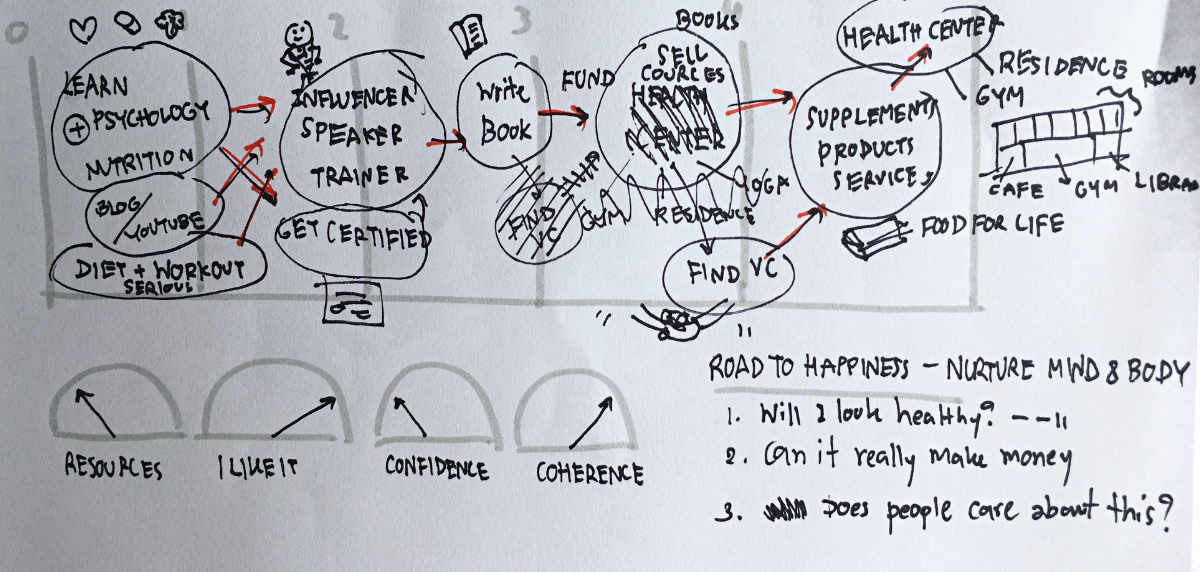 0
2
3
LEARN
+ PSYCHOLOGY
NUTRITION
BLOG/
YOUTUBE
DIET + WORKOUT
SERIOUS
INFLUENCER
SPEAKER
TRAINER
GET CERTIFIED
Write
Book
FIND
VC
FUND
BOOKS
SELL
COURCES
HEALTH
CENTER
GYM
RESIDENCE
YOGA
FIND VC
HEALTH CENTER
RESIDENCE
GYM
ROOMS
CAFE
GYM
LIBRA
SUPPLEMENTS
PRODUCTS
SERVICES
FOOD FOR LIFE
RESOURCES
I LIKE IT
CONFIDENCE
COHERENCE
ROAD TO HAPPINESS - NURTURE MIND & BODY
1. Will I look healthy? - - "
2. Can it really make money
3. Does people care about this?